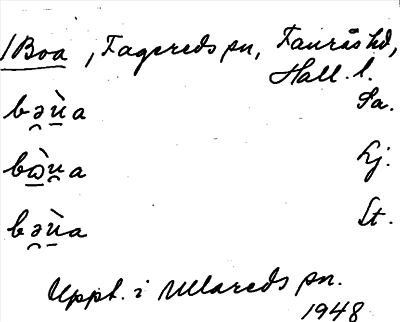 /Boa, Fagereds sn, Faurås hd,
Hall. l.
bə̯ù̱a Sa.
bὼ̱u̯a Lj.
bə̯ù̱a St.
Uppt. i Ullareds sn.
1948